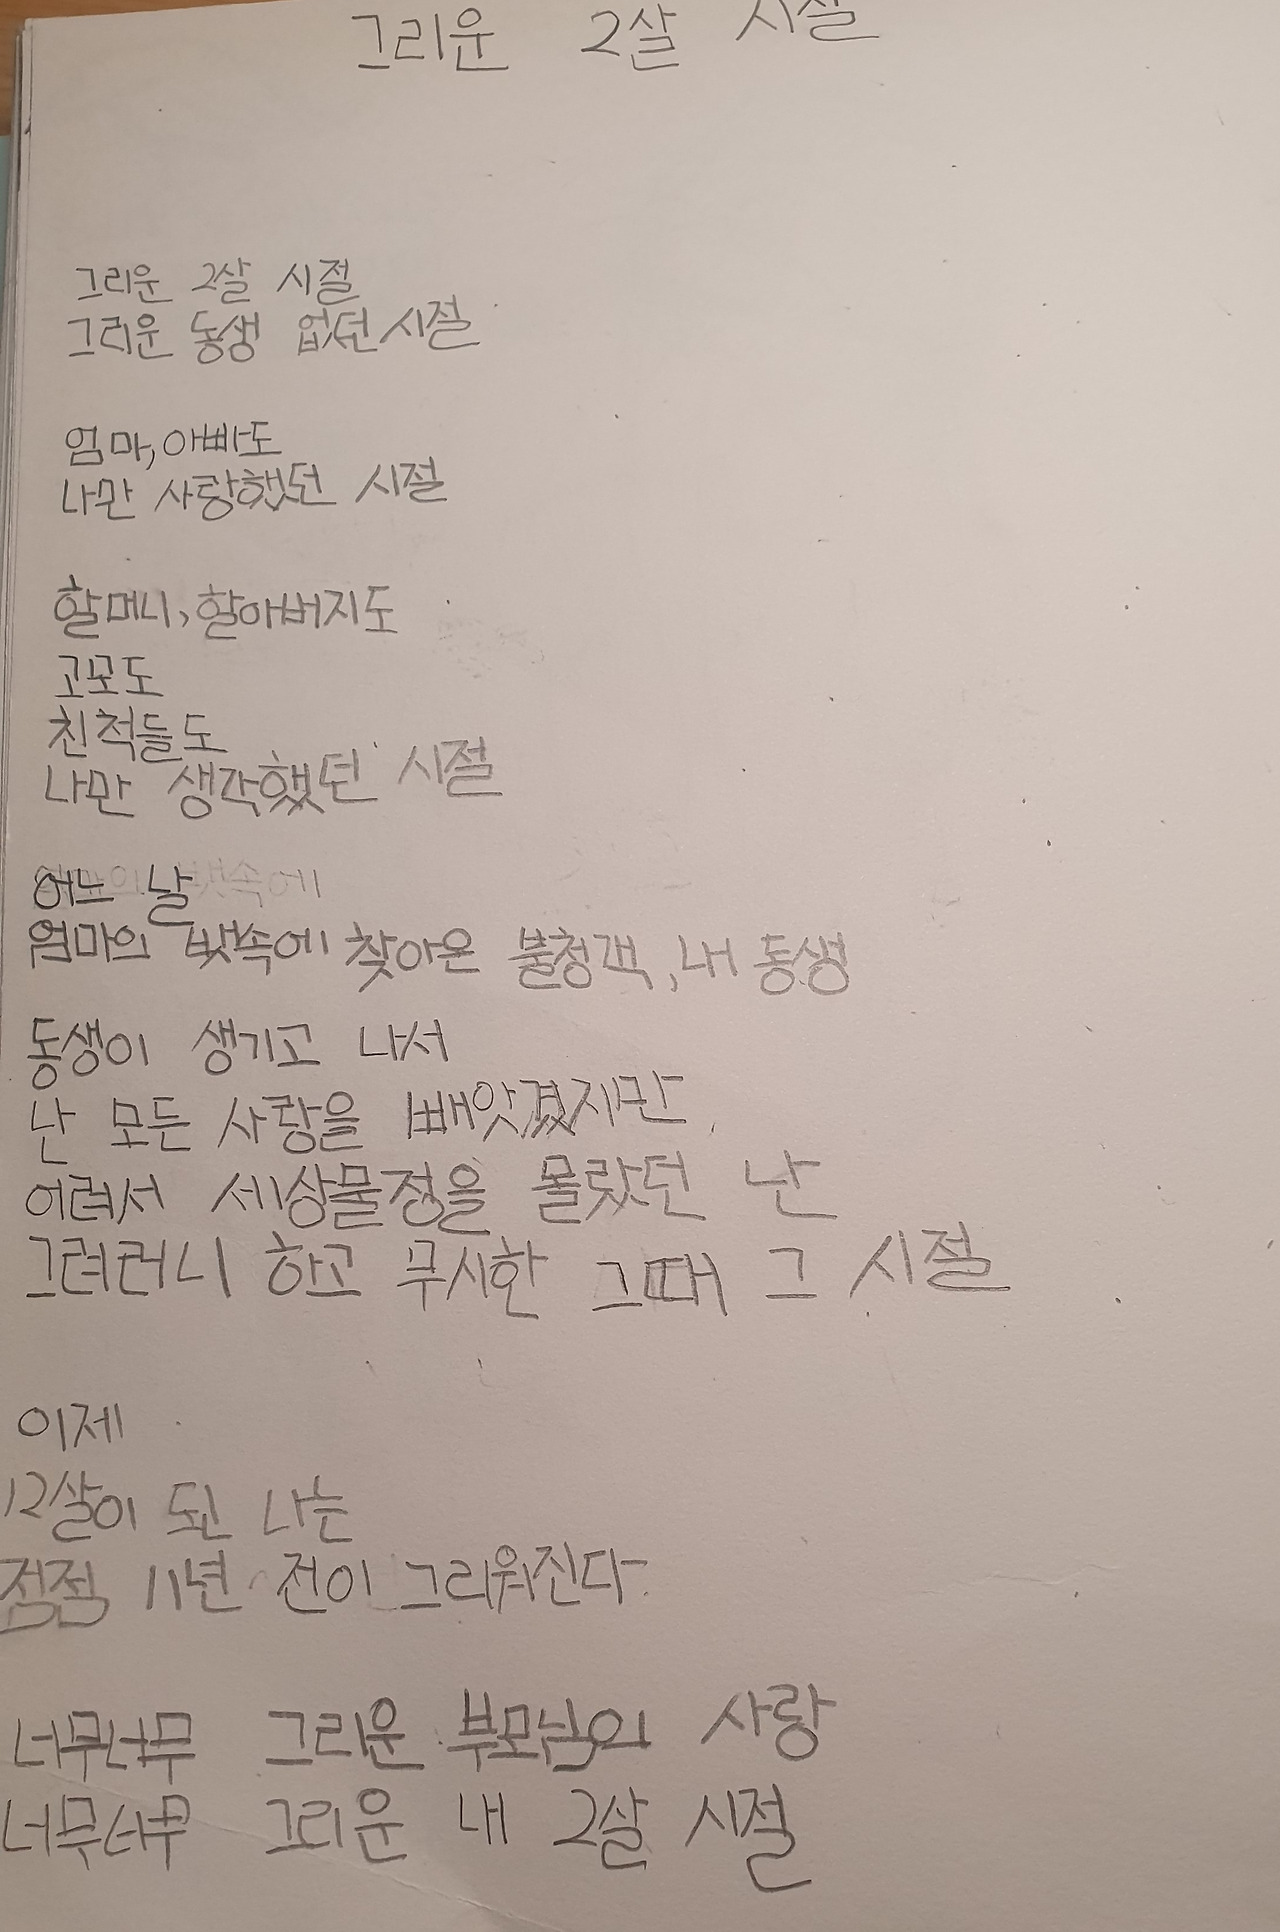 그리운 2살 시절
그리운 2살 시절
그리운 동생 없던 시절
엄마, 아빠도
나만 사랑했던 시절
할머니, 할아버지도
고모도
친척들도
나만 생각했던 시절
어느 날
엄마의 뱃속에 찾아온 불청객, 내 동생
동생이 생기고 나서
난 모든 사랑을 빼앗겼지만
어려서 세상물정을 몰랐던 난
그려러니 하고 무시한 그때 그 시절
이제
12살이 된 나는
점점 11년 전이 그리워진다
너무너무 그리운 부모님의 사랑
너무너무 그리운 내 2살 시절